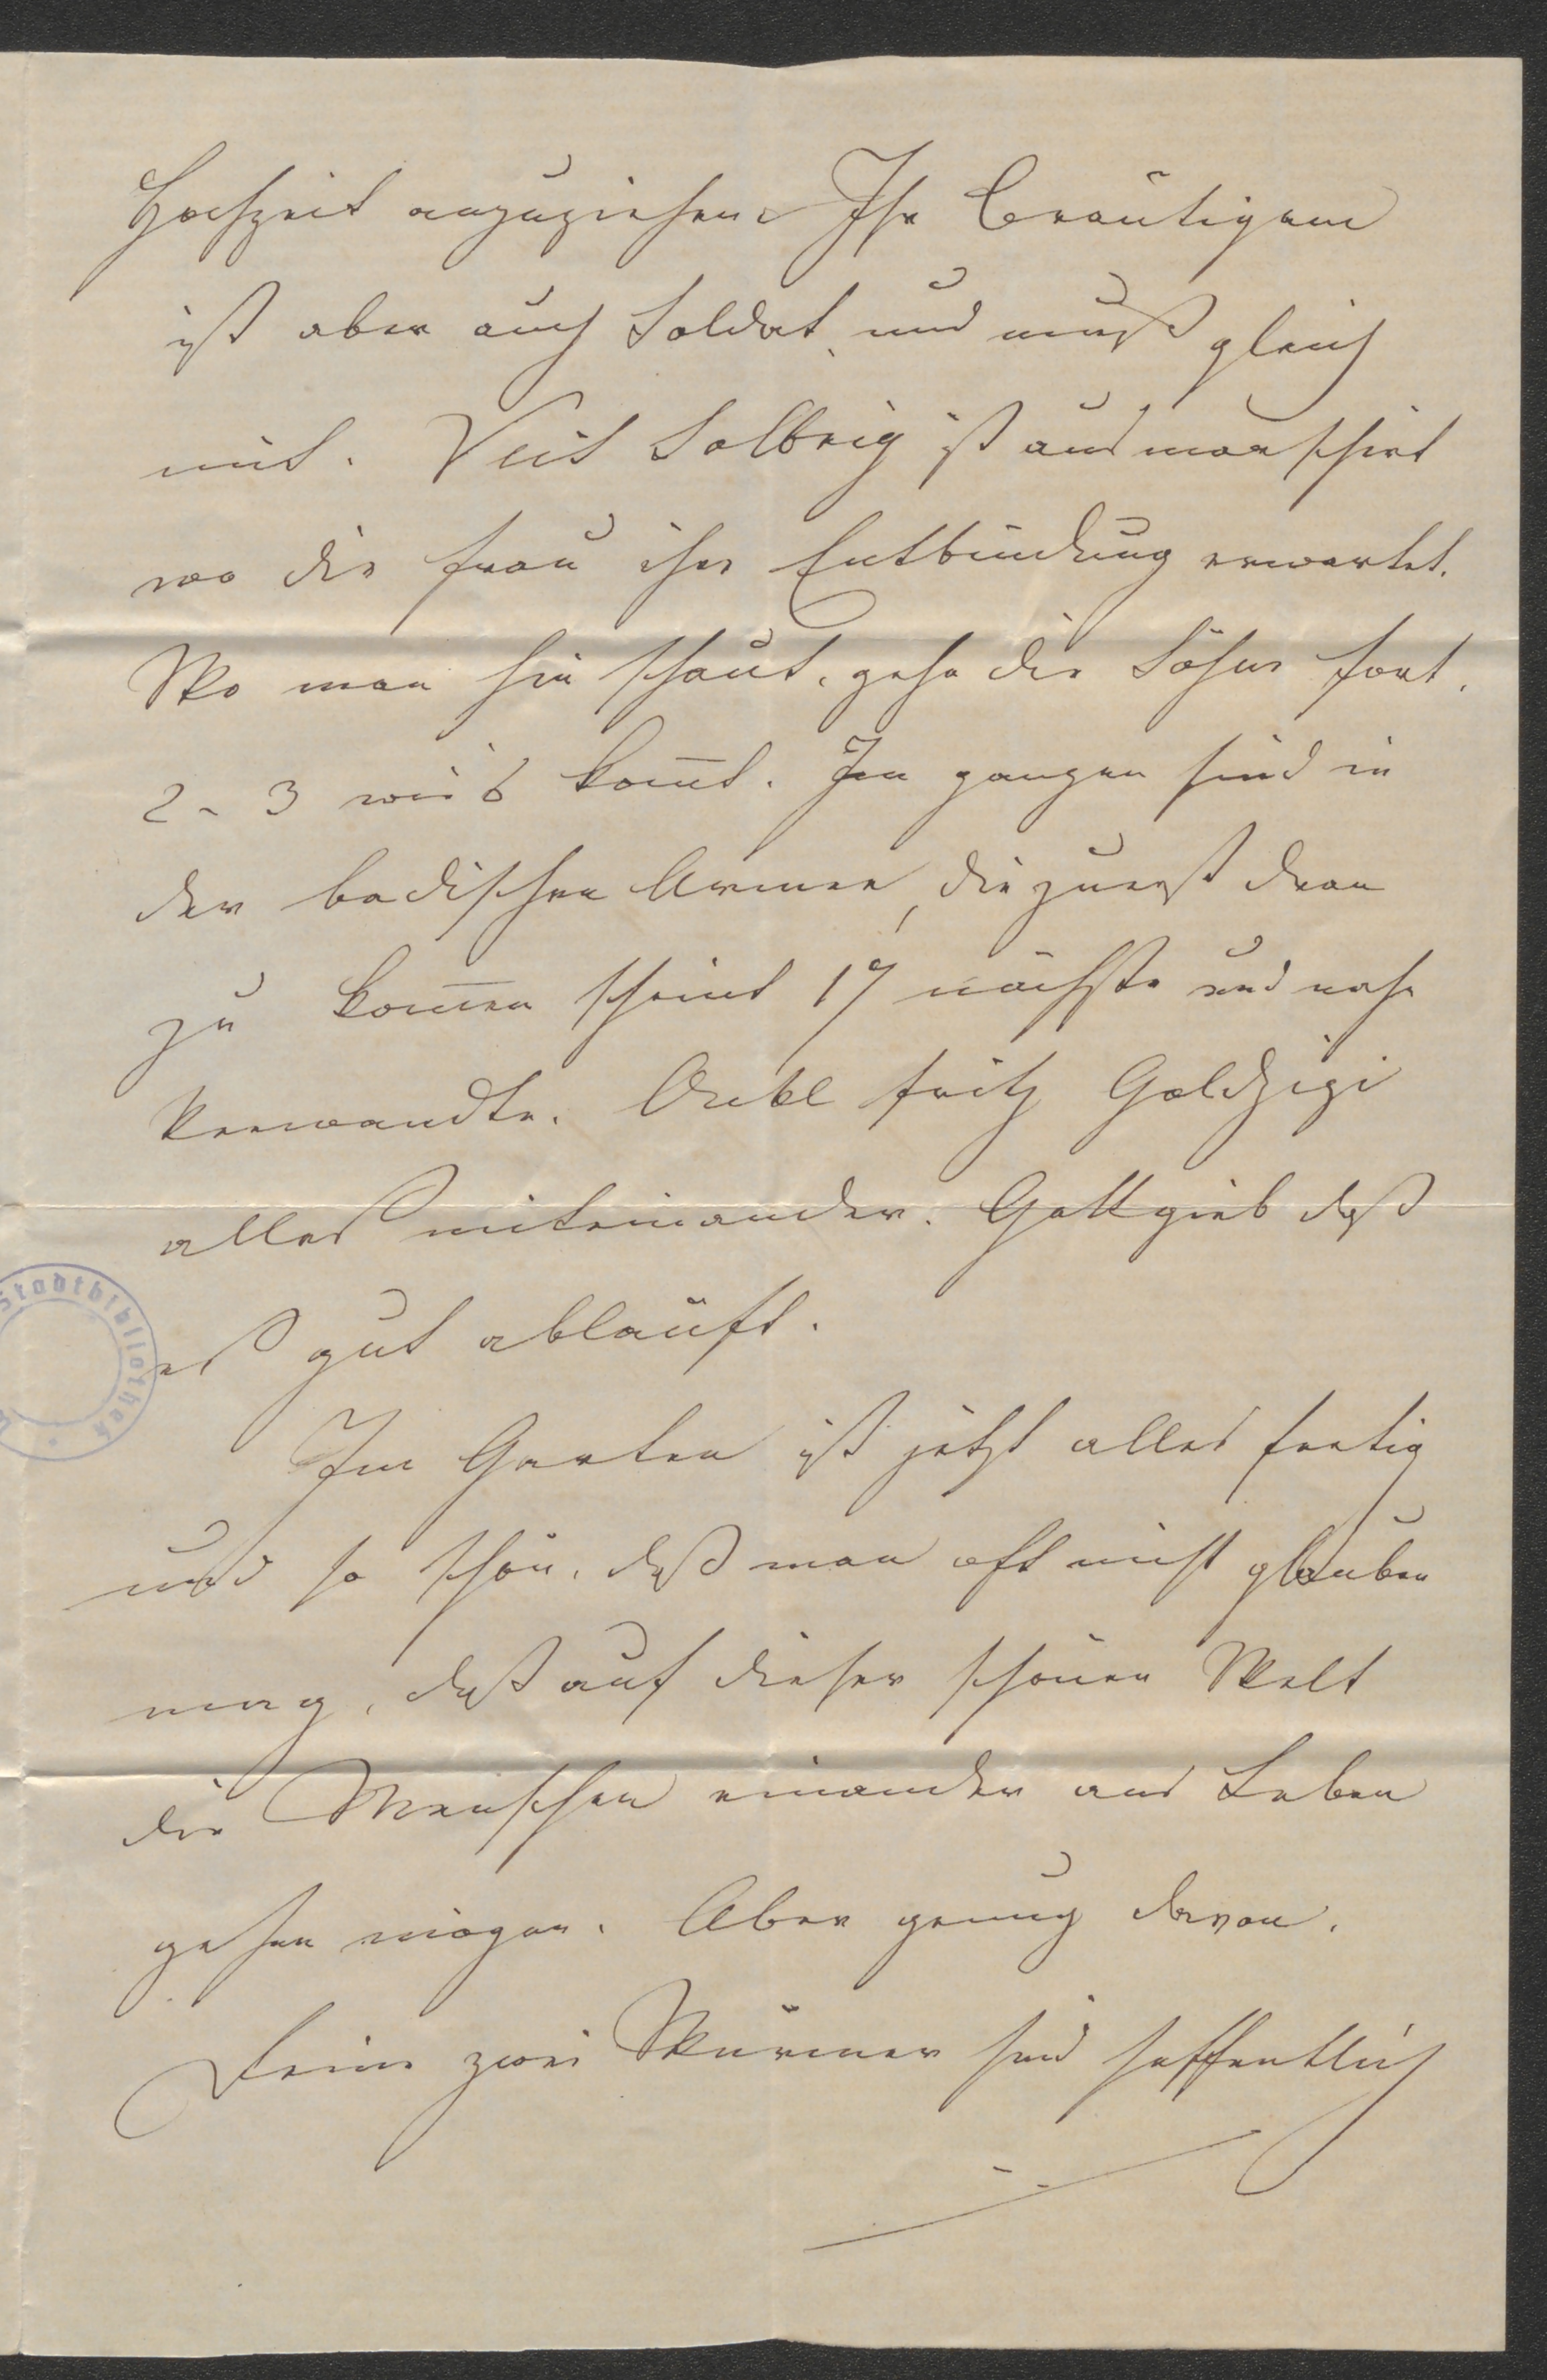 Hochzeit anzuziehen. Ihr Bräutigam
ist aber auch Soldat, und muß gleich
mit. Veit Solbrig ist ausmarschirt
wo die Frau ihre Entbindung erwartet.
Wo man hin schaut, gehe die Söhne fort,
2 - 3 wie's kom̅t. Im ganzen sind in
der badischen Armee, die zuerst dran
zu kom̅en scheint 17 nächste und nahe
Verwandte. Onkel Fritz
alles miteinander. Gott gieb daß
es gut abläuft.
Im Garten ist jetzt alles fertig
und so schön, daß man oft nicht glauben
mag, daß auf dieser schönen Welt
die Menschen einander ans Leben
gehen mögen. Aber genug davon.
Deine zwei Würmer sind hoffentlich
Stadtbibliothek